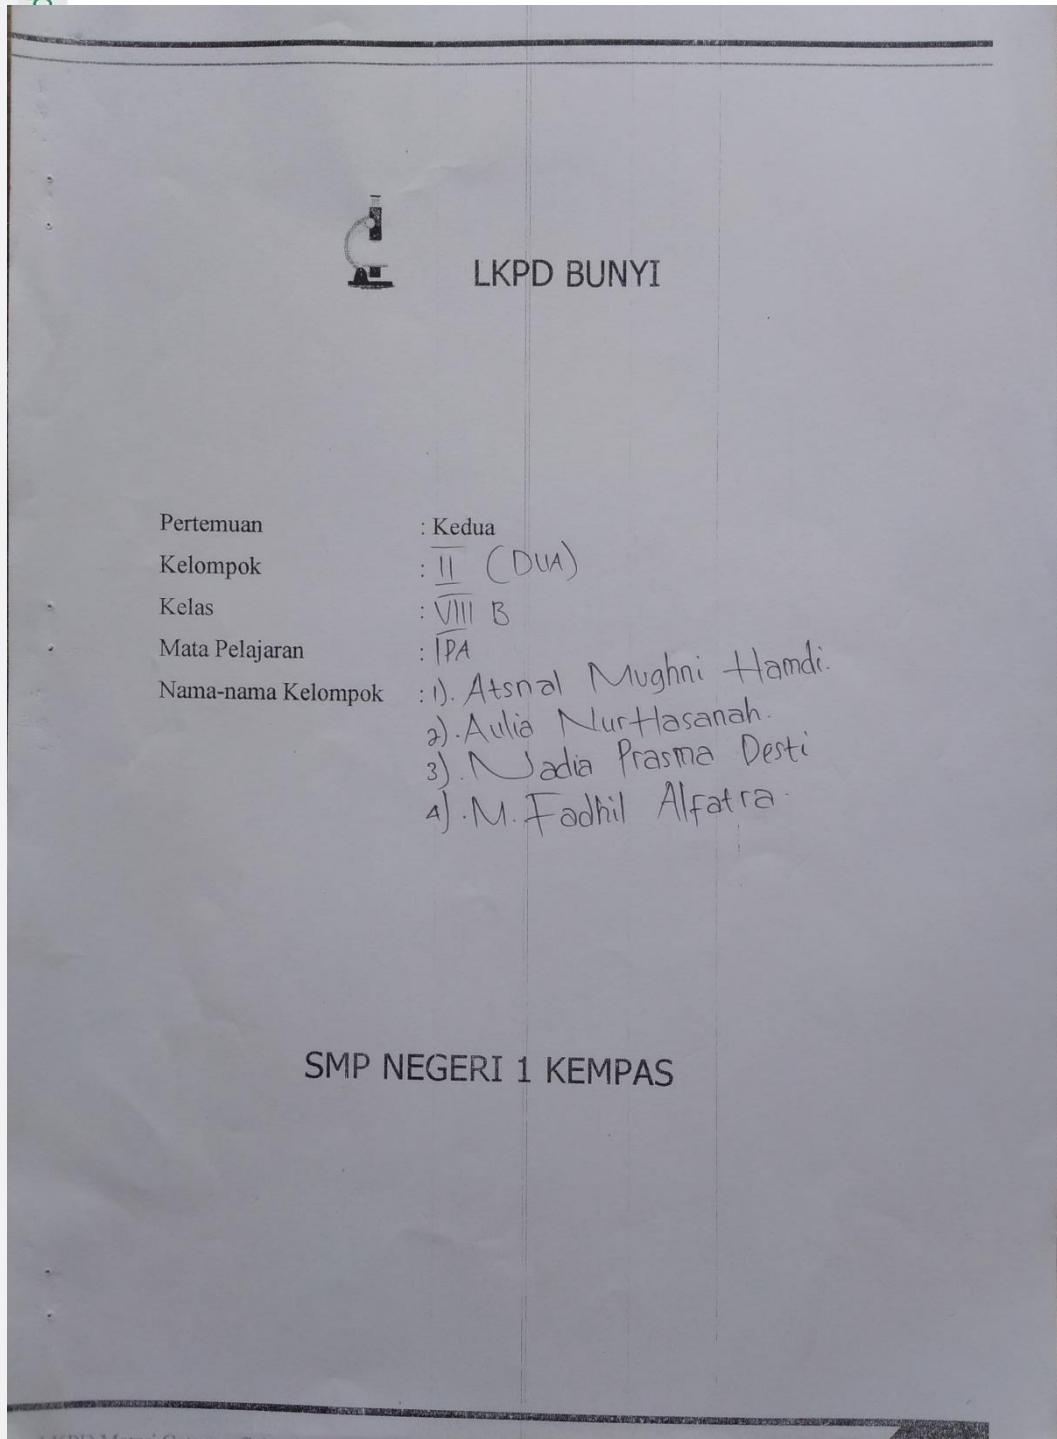 LKPD BUNYI
Pertemuan : Kedua
Kelompok : II (DUA)
Kelas : VIII B
Mata Pelajaran : IPA
Nama-nama Kelompok : 1). Atsnal Mughni Hamdi.
2). Aulia NurHasanah.
3). Nadia Prasma Desti
4). M. Fadhil Alfatra.
SMP NEGERI 1 KEMPAS